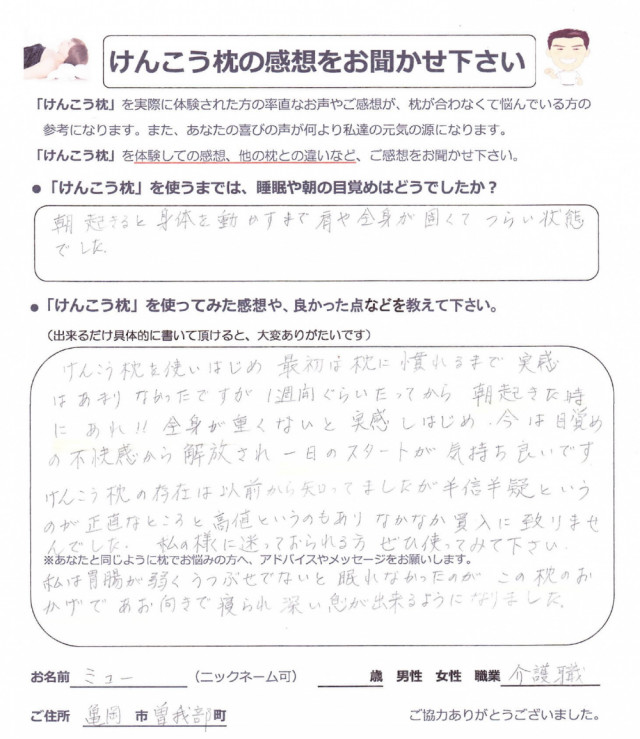 けんこう枕の感想をお聞かせ下さい
「けんこう枕」を実際に体験された方の率直なお声やご感想が、枕が合わなくて悩んでいる方の
参考になります。また、あなたの喜びの声が何より私達の元気の源になります。
「けんこう枕」を体験しての感想、他の枕との違いなど、ご感想をお聞かせ下さい。
●「けんこう枕」を使うまでは、睡眠や朝の目覚めはどうでしたか？
朝起きると身体を動かすまで肩や全身が固くてつらい状態
でした
●「けんこう枕」を使ってみた感想や、良かった点などを教えて下さい。
（出来るだけ具体的に書いて頂けると、大変ありがたいです）
けんこう枕を使いはじめ 最初は枕に慣れるまで 実感
はあまりなかったですが 1週間ぐらいたってから 朝起きた時
に あれ!! 全身が重くないと 実感しはじめ、今は目覚め
の不快感から解放され一日のスタートが気持ち良いです
けんこう枕の存在は以前から知ってましたが半信半疑という
のが正直なところと高値というのもありなかなか買入に致りませ
んでした。 私の様に迷っておられる方 ぜひ使ってみて下さい.
※あなたと同じように枕でお悩みの方へ、アドバイスやメッセージをお願いします。
私は胃腸が弱くうつぶせでないと眠れなかったのが この枕のお
かげで あお向きで寝られ 深い息が出来るようになりました.
お名前 ミョー （ニックネーム可） 歳 男性 女性 職業 介護職
ご住所 亀岡 市 曽我部 町 ご協力ありがとうございました。